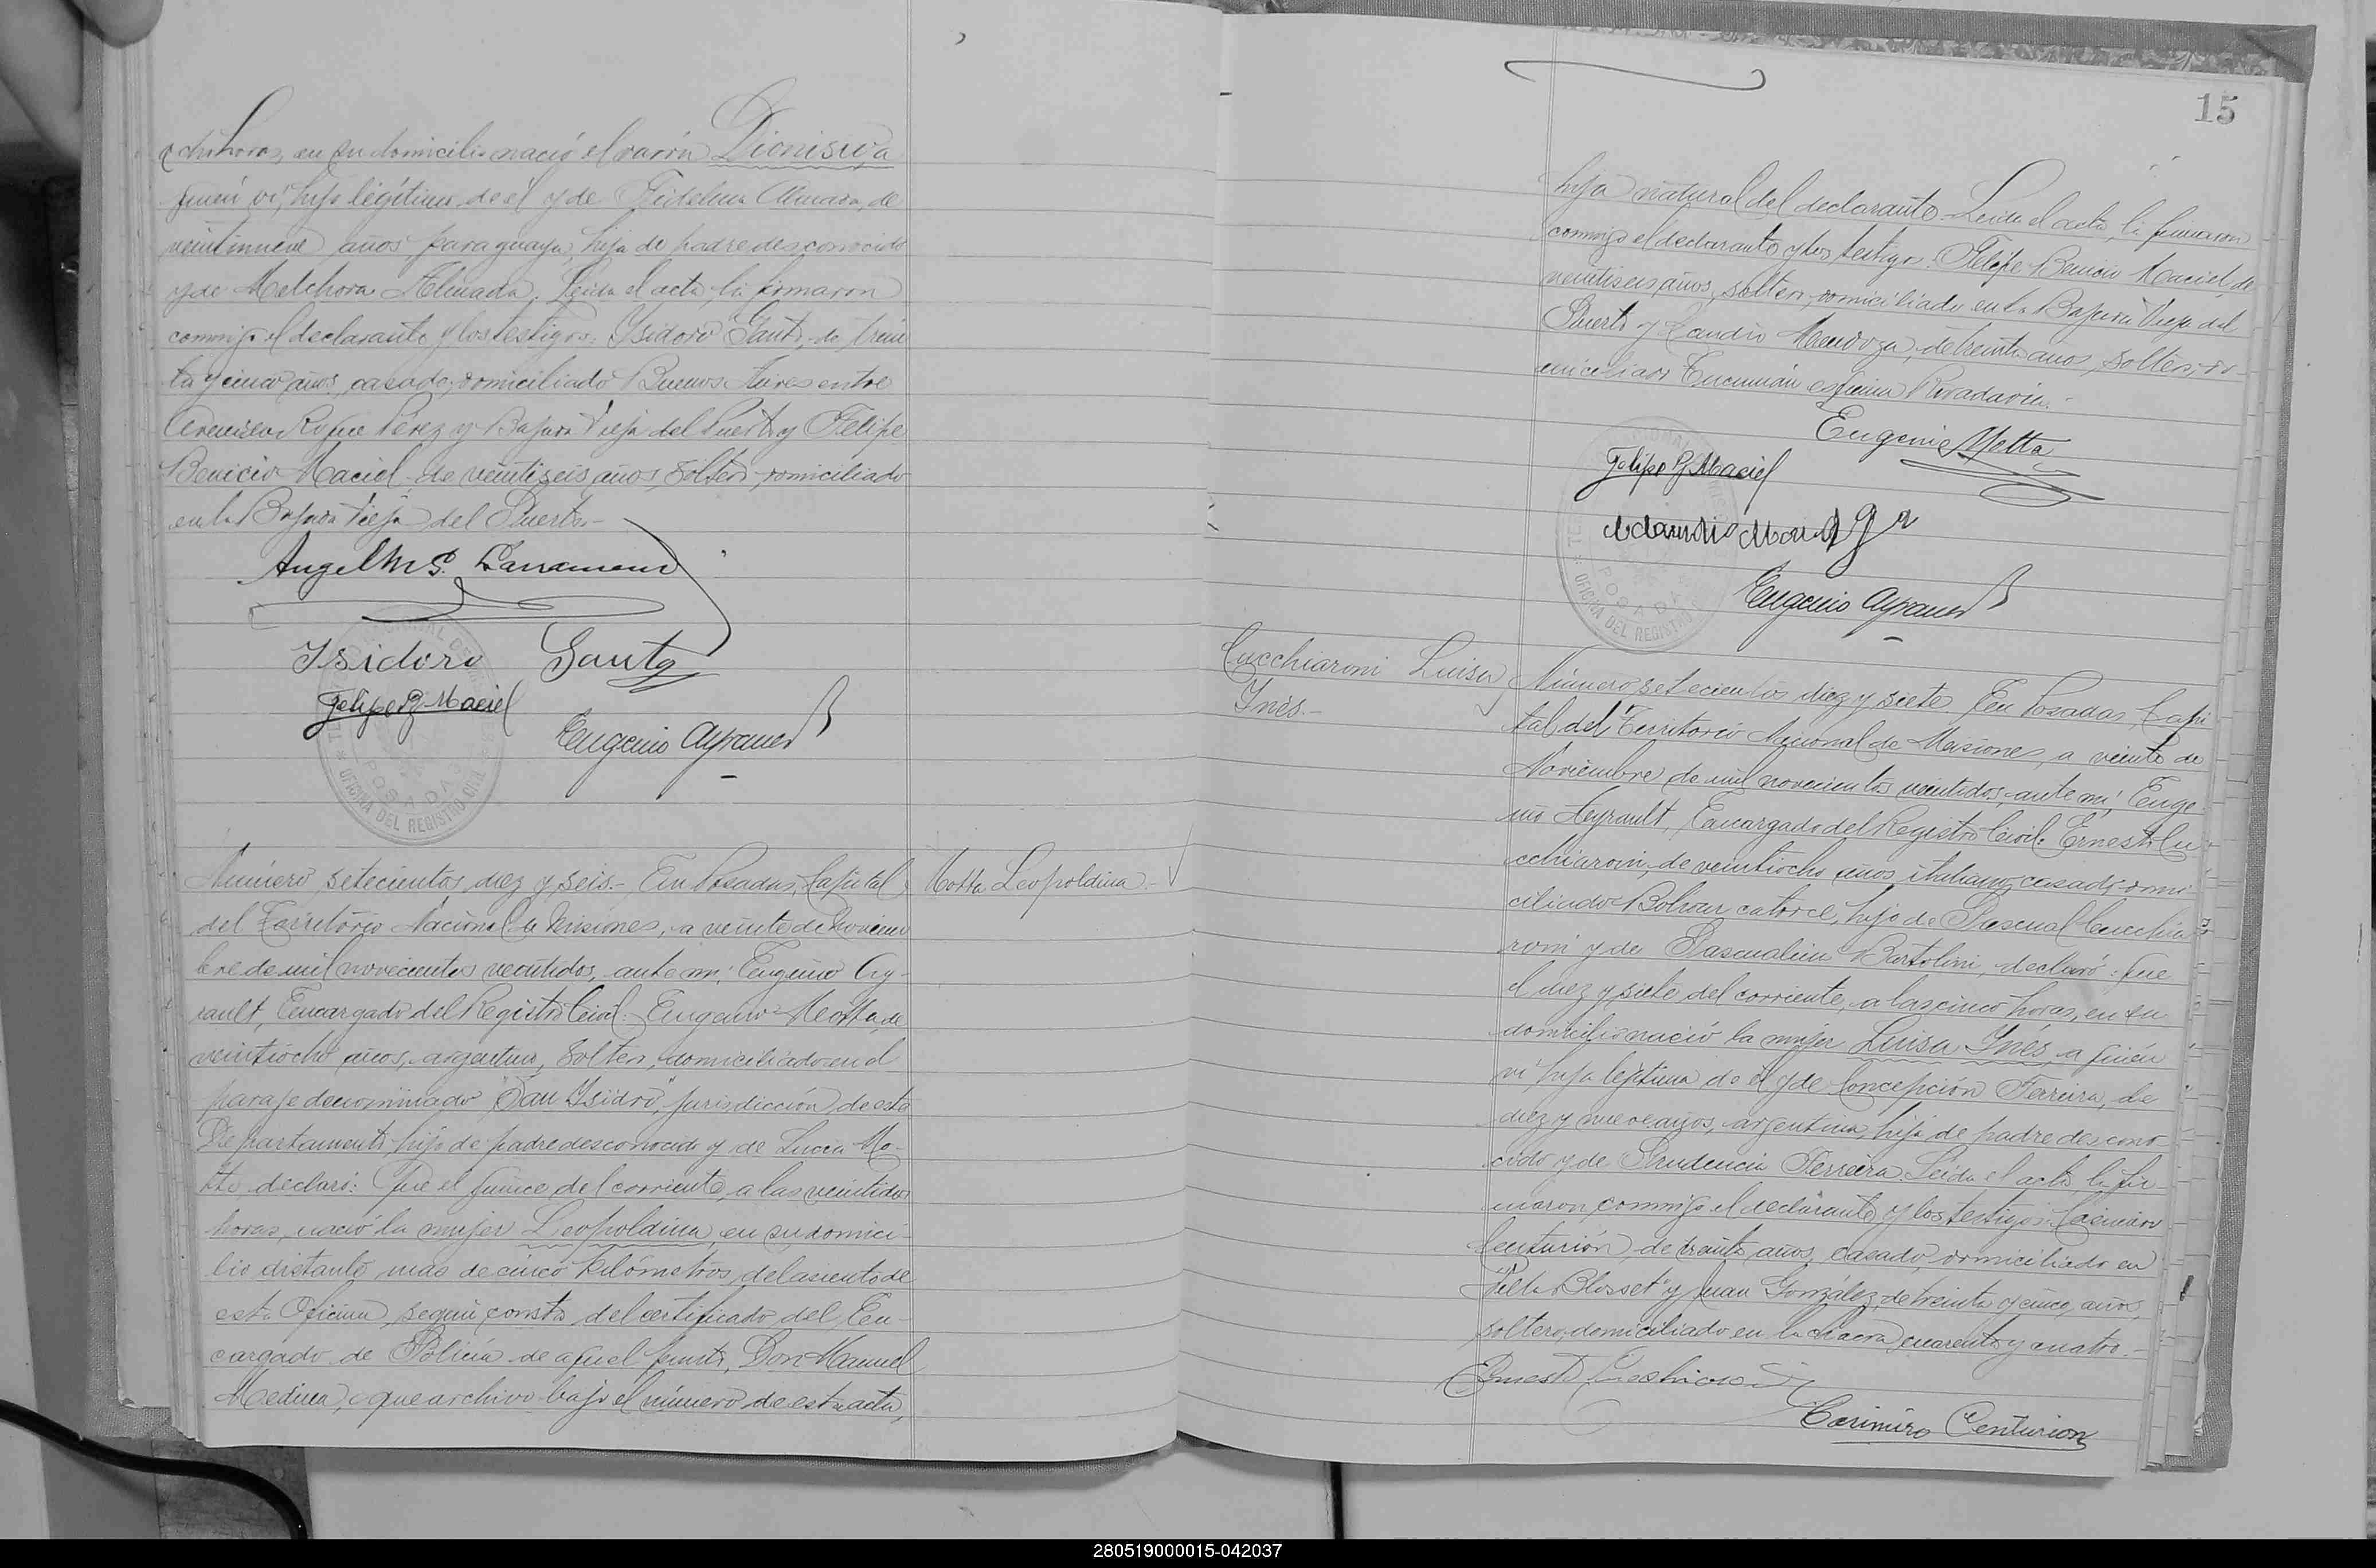 ocho horas, en su domicilio nació el varón Dionisio a
quién ví, hijo legítimo de él y de Fidelina Almada, de
veintinueve años paraguaya, hija de padre desconocido
y de Melchora Almada. Leida el acta, la firmaron
conmigo el declarante y los testigos: Isidoro Gauto, de trein
ta y cinco años, casado, domiciliado Buenos Aires entre
Avenida Roque Pérez y Bajada Vieja del Puerto y Felipe
Benicio Maciel de veintiseis años, soltero, domiciliado
en la Bajada Vieja del Puerto.-
Angel M. S.
Isidoro Gauto
Felipe B. Maciel
Eugenio Ayrault
POSADAS
OFICINA DEL REGISTRO CIVIL
Número setecientos diez y seis.- En Posadas, Capital
del Territorio Nacional de Misiones, a veinte de Noviem
bre de mil novecientos veintidos, ante mi: Eugenio Ay-
rault, Encargado del Registro Civil: Eugenio Motta, de
veintiocho años, argentino, soltero, domiciliado en el
paraje denominado "San Isidro", jurisdicción de este
Departamento, hijo de padre desconocido y de Lucia Mo-
tta declaró: Que el quince del corriente, a las veintidos
horas, nació la mujer Leopoldina, en su domici-
lio distante mas de cinco kilómetros del asiento de
esta Oficina, según consta del certificado del En-
cargado de Policía de aquel punto, Don Manuel
Medina, que archivo bajo el número de esta acta,
Motta Leopoldina.-
15
hija natural del declarante. Leida el acta, la firmaron
conmigo el declarante y los testigos: Felipe Benicio Maciel, de
veintiseis años, soltero, domiciliado en la Bajada Vieja del
Puerto y Claudio Mendoza, de treinta años, soltero, do-
miciliado Tucumán esquina Rivadavia.-
Eugenio Motta
Felipe B. Maciel
Claudio Mendoza
Eugenio Ayrault
POSADAS
OFICINA DEL REGISTRO
Cucchiaroni Luisa
Inés.-
Número setecientos diez y siete. En Posadas, Capi
tal del Territorio Nacional de Misiones, a veinte de
Noviembre de mil novecientos veintidos, ante mí, Euge-
nio Ayrault, Encargado del Registro Civil: Ernesto Cu-
cchiaroni, de veintiocho años, italiano, casado, domi
ciliado Bolivar catorce, hijo de Pascual Cucchia
roni y de Pascualina Bartolini, declaró: que
el diez y siete del corriente, a las cinco horas, en su
domicilio nació la mujer Luisa Inés, a quién
ví hija legítima de él y de Concepción Ferreira, de
diez y nueve años, argentina, hija de padre descono
cido y de Prudencia Ferreira. Leida el acta, la fir
maron conmigo el declarante y los testigos: Casimiro
Centurión, de treinta años, casado, domiciliado en
"Villa Blosset" y Juan González, de treinta y cinco años,
soltero, domiciliado en la chacra cuarenta y cuatro.-
Ernesto Cucchiaroni
Casimiro Centurion
280519000015-042037